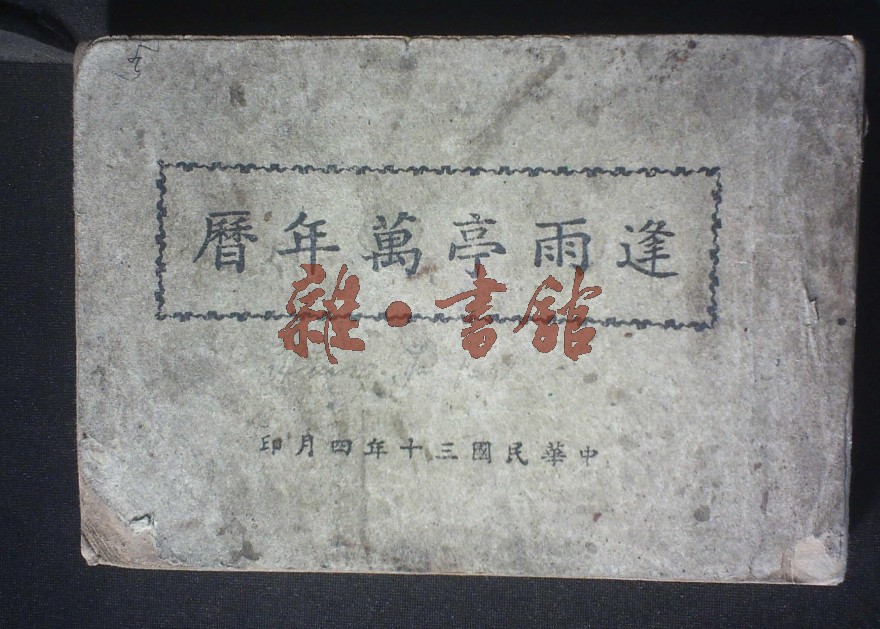 逢雨亭萬年曆
雜·書館
中華民國三十年四月印